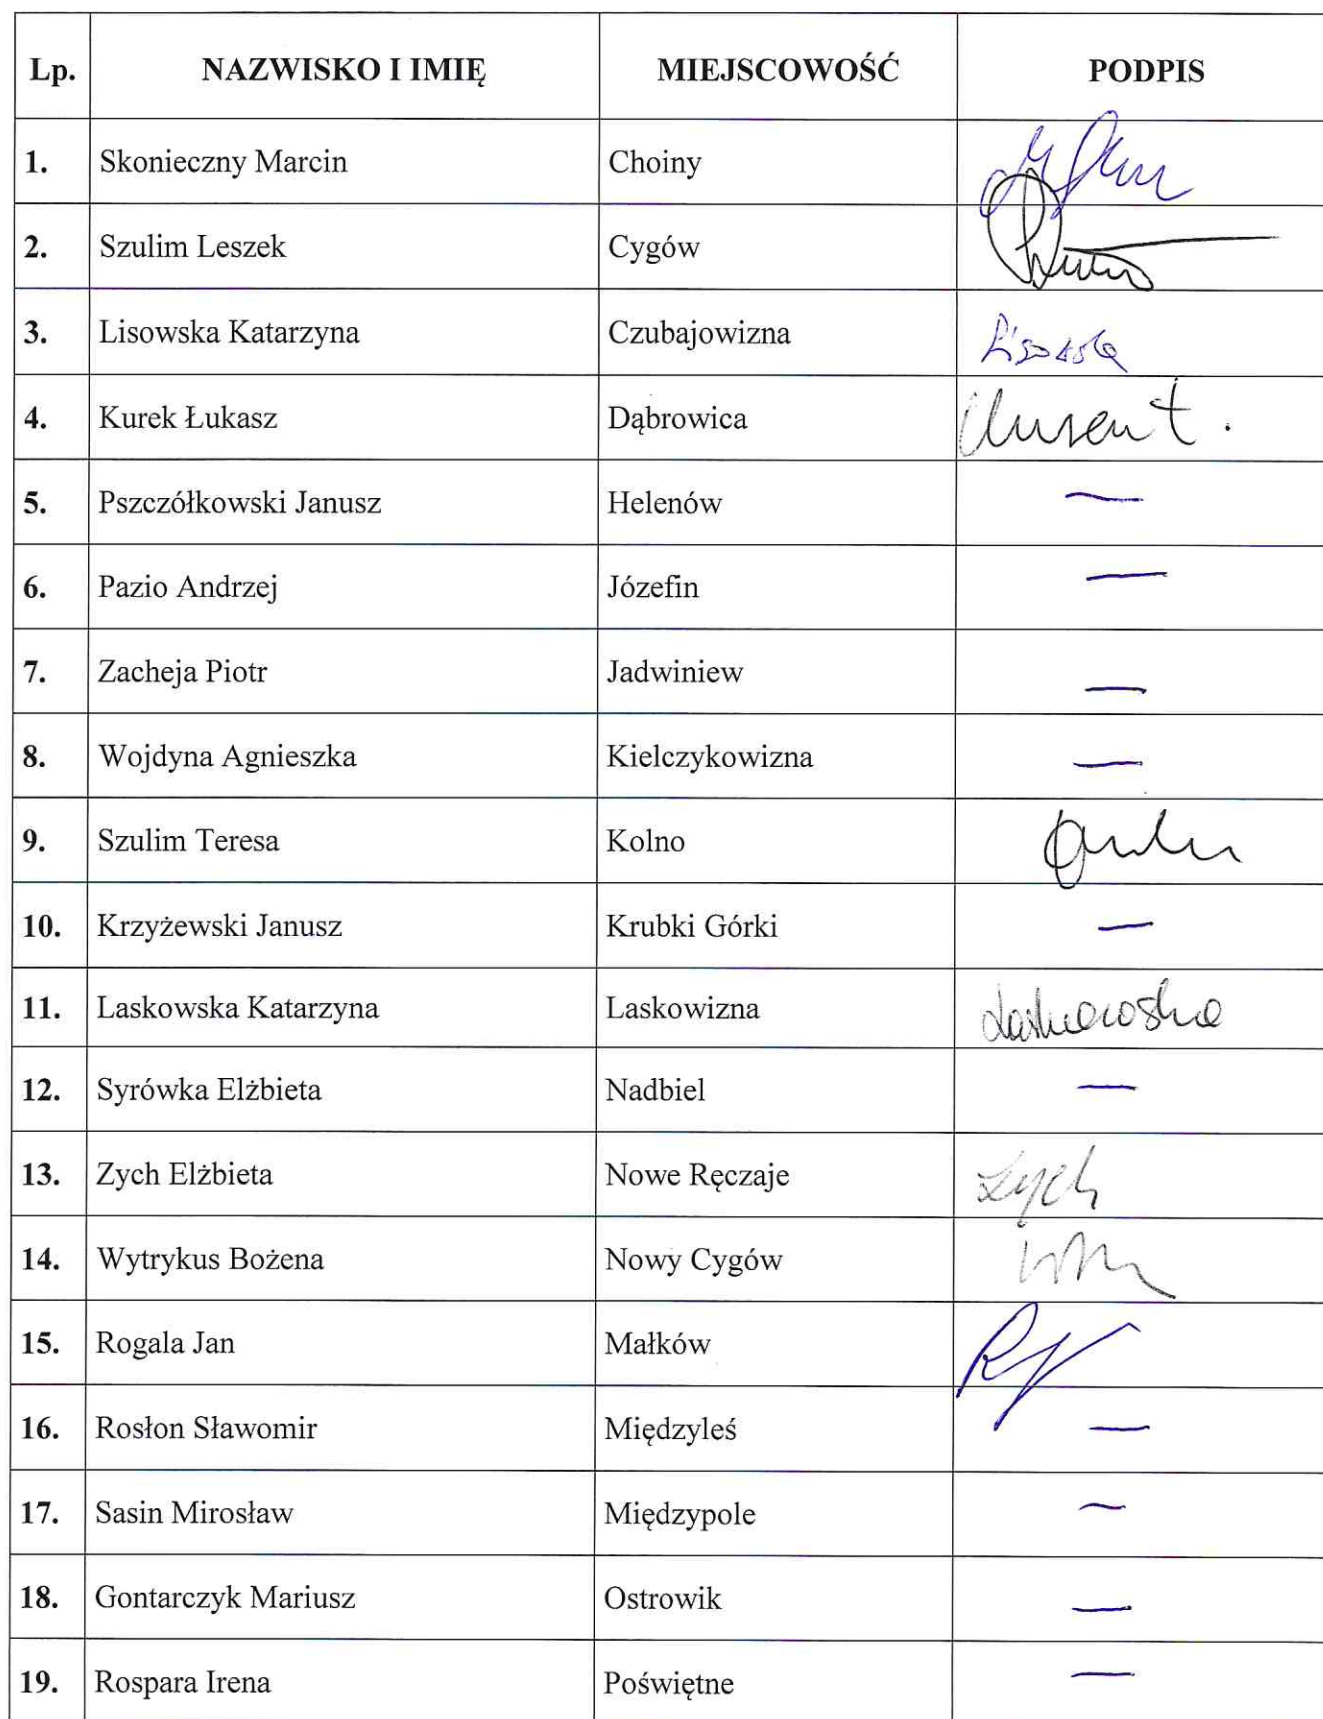 Lp. NAZWISKO I IMIĘ MIEJSCOWOŚĆ PODPIS
1. Skonieczny Marcin Choiny
2. Szulim Leszek Cygów
3. Lisowska Katarzyna Czubajowizna
4. Kurek Łukasz Dąbrowica
5. Pszczółkowski Janusz Helenów —
6. Pazio Andrzej Józefin —
7. Zacheja Piotr Jadwiniew —
8. Wojdyna Agnieszka Kielczykowizna —
9. Szulim Teresa Kolno
10. Krzyżewski Janusz Krubki Górki —
11. Laskowska Katarzyna Laskowizna Laskowska
12. Syrówka Elżbieta Nadbiel —
13. Zych Elżbieta Nowe Ręczaje Zych
14. Wytrykus Bożena Nowy Cygów
15. Rogala Jan Małków
16. Rosłon Sławomir Międzyleś —
17. Sasin Mirosław Międzypole —
18. Gontarczyk Mariusz Ostrowik —
19. Rospara Irena Poświętne —